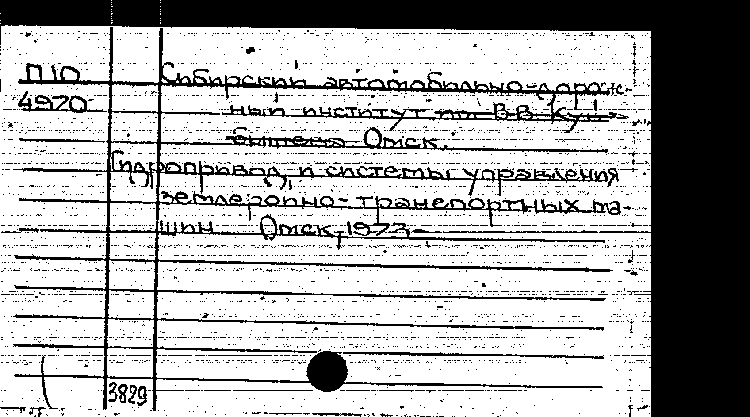 П10
4970
Сибирский автомобильно-дорож-
ный институт им. В.В. Куй-
бышева Омск.
Гидропривод и системы управления
землеройно-транспортных ма-
шин Омск, 1973-
3829